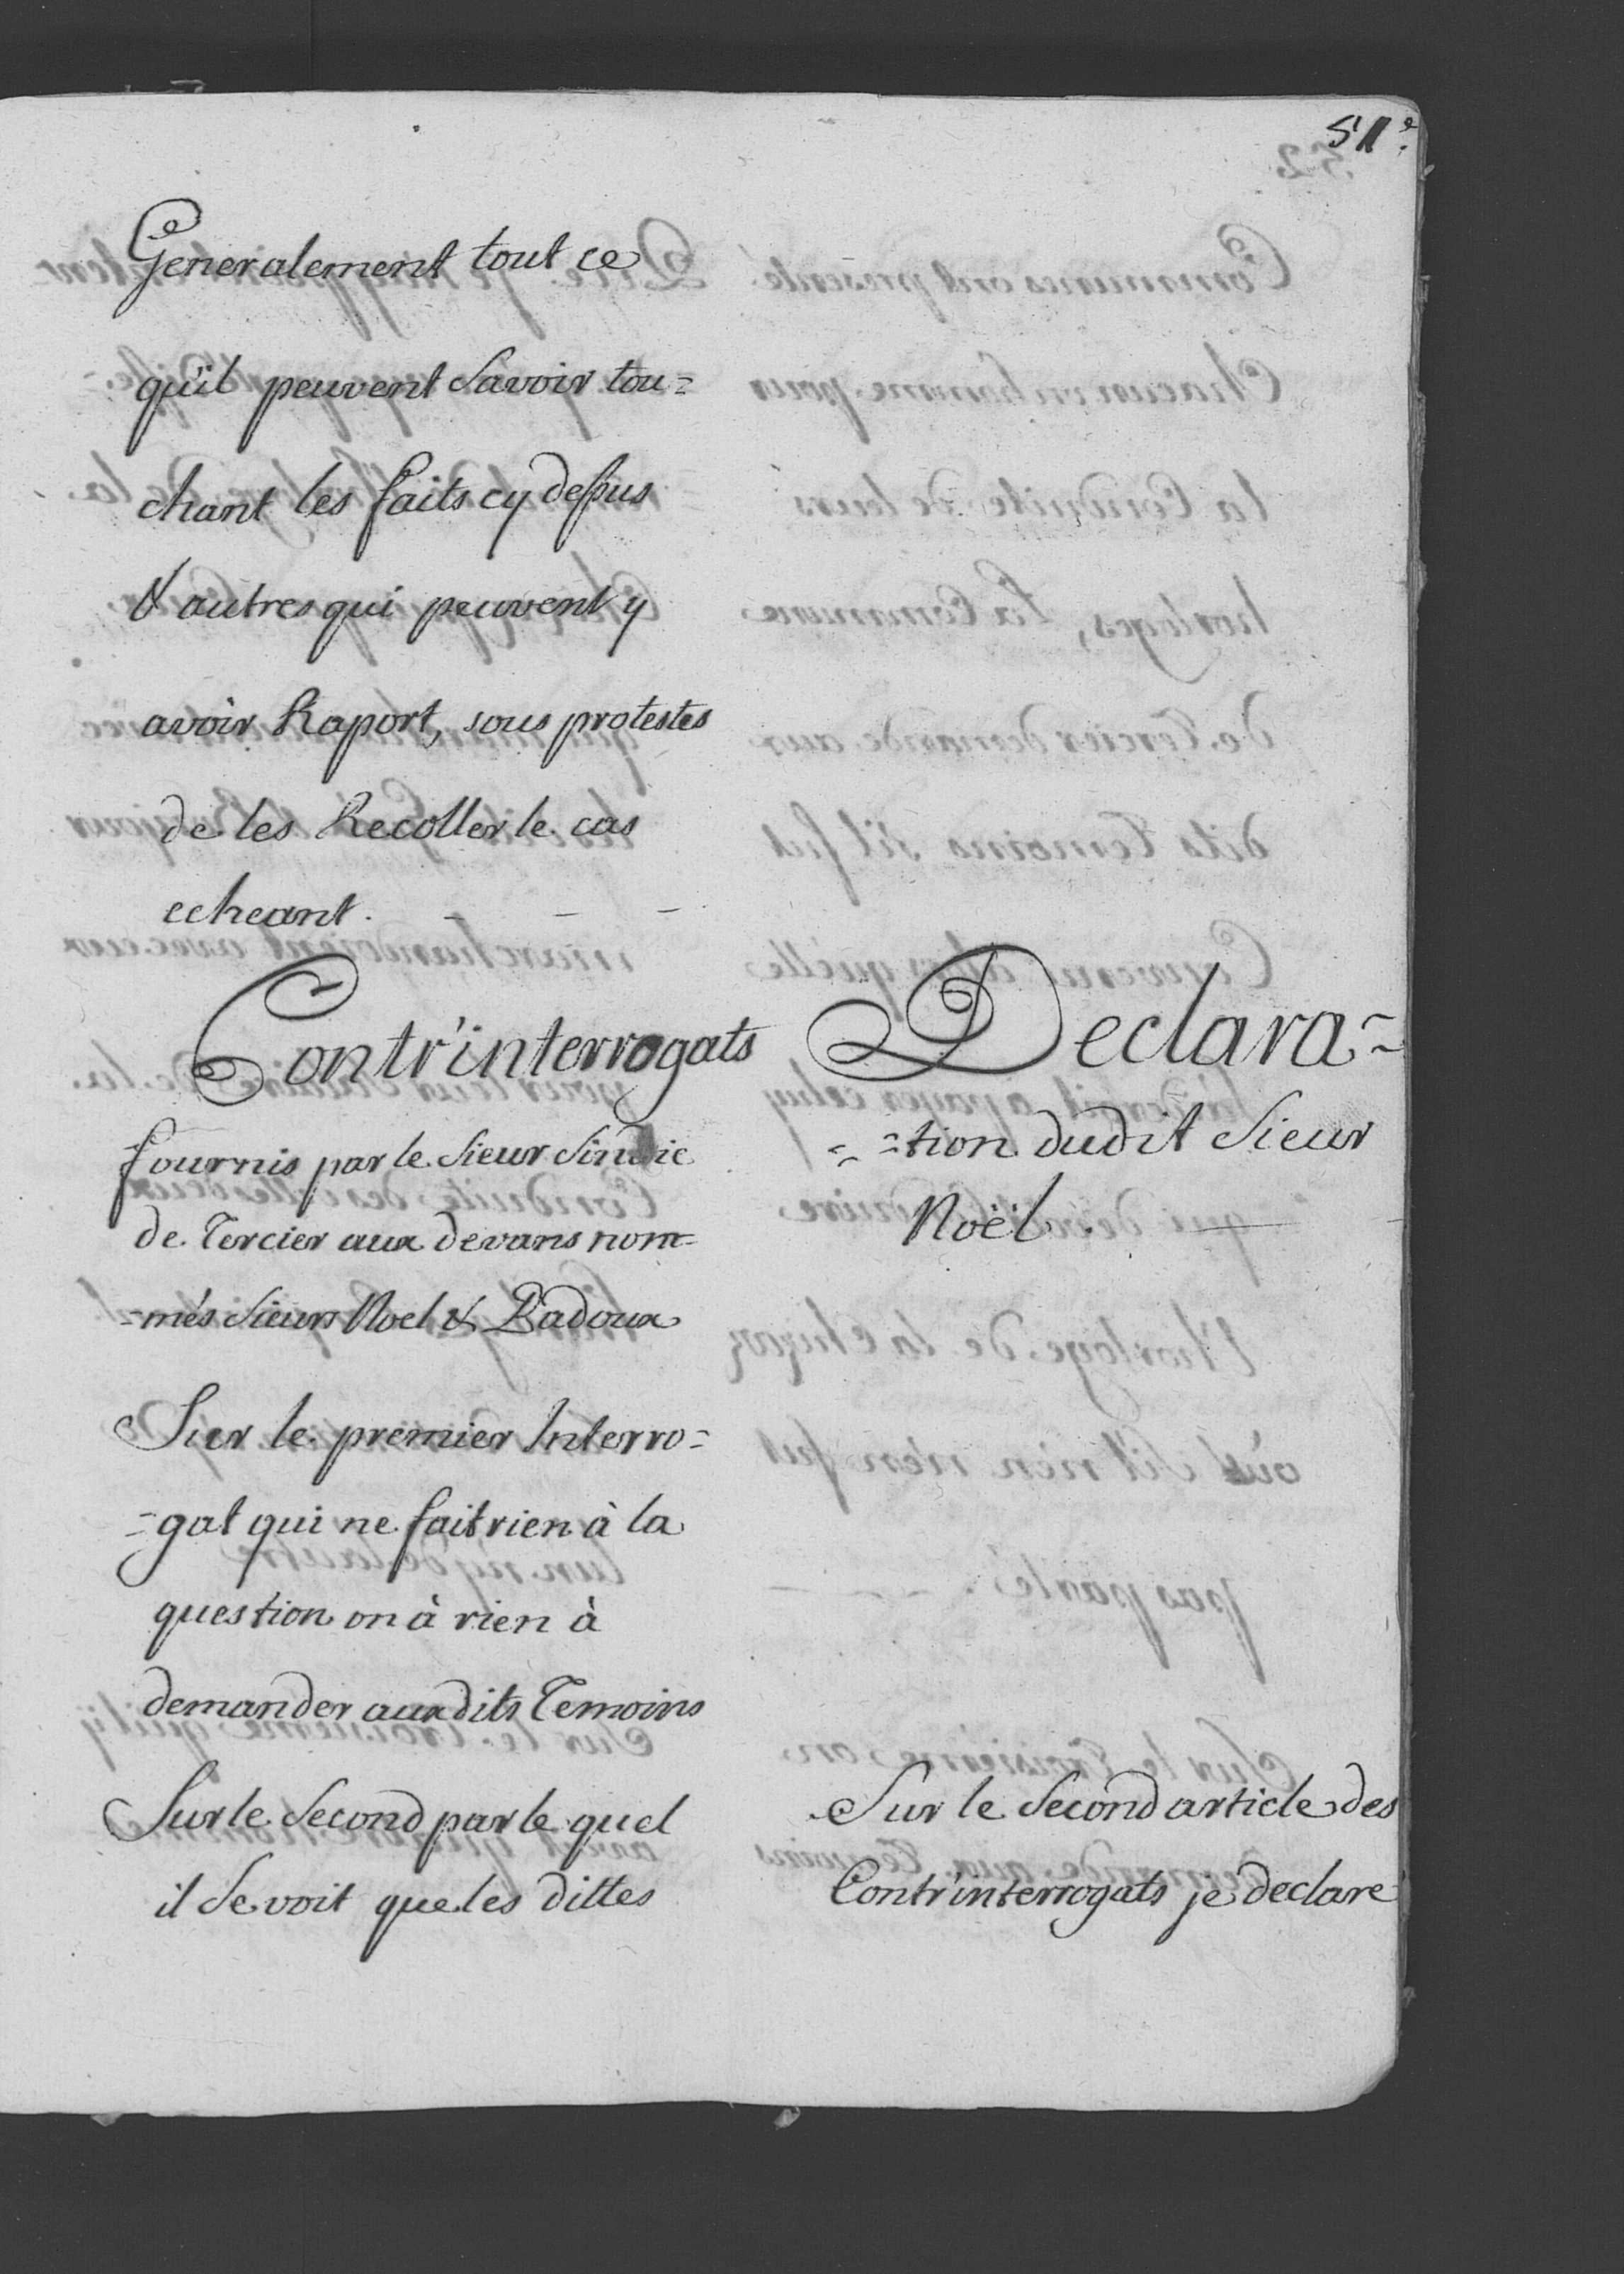 51.e
Generalement tout ce
qu'il peuvent Savoir tou=
chant les faits cy dessus
& autres qui peuvent y
avoir Raport, sous protestes
de les Recoller le cas
echeant. - - -
Contr'interrogats
fournis par le Sieur Sindic
de Tercier aux devans nom=
=més Sieurs Noel & Badoux
Sur le premier Interro=
=gat qui ne fait rien à la
question on à rien à
demander auxdits Temoins
Sur le Second par le quel
il Se voit que les dittes
Declara=
=tion dudit Sieur
Noël.
Sur le Second article des
Contr'interrogats je declare